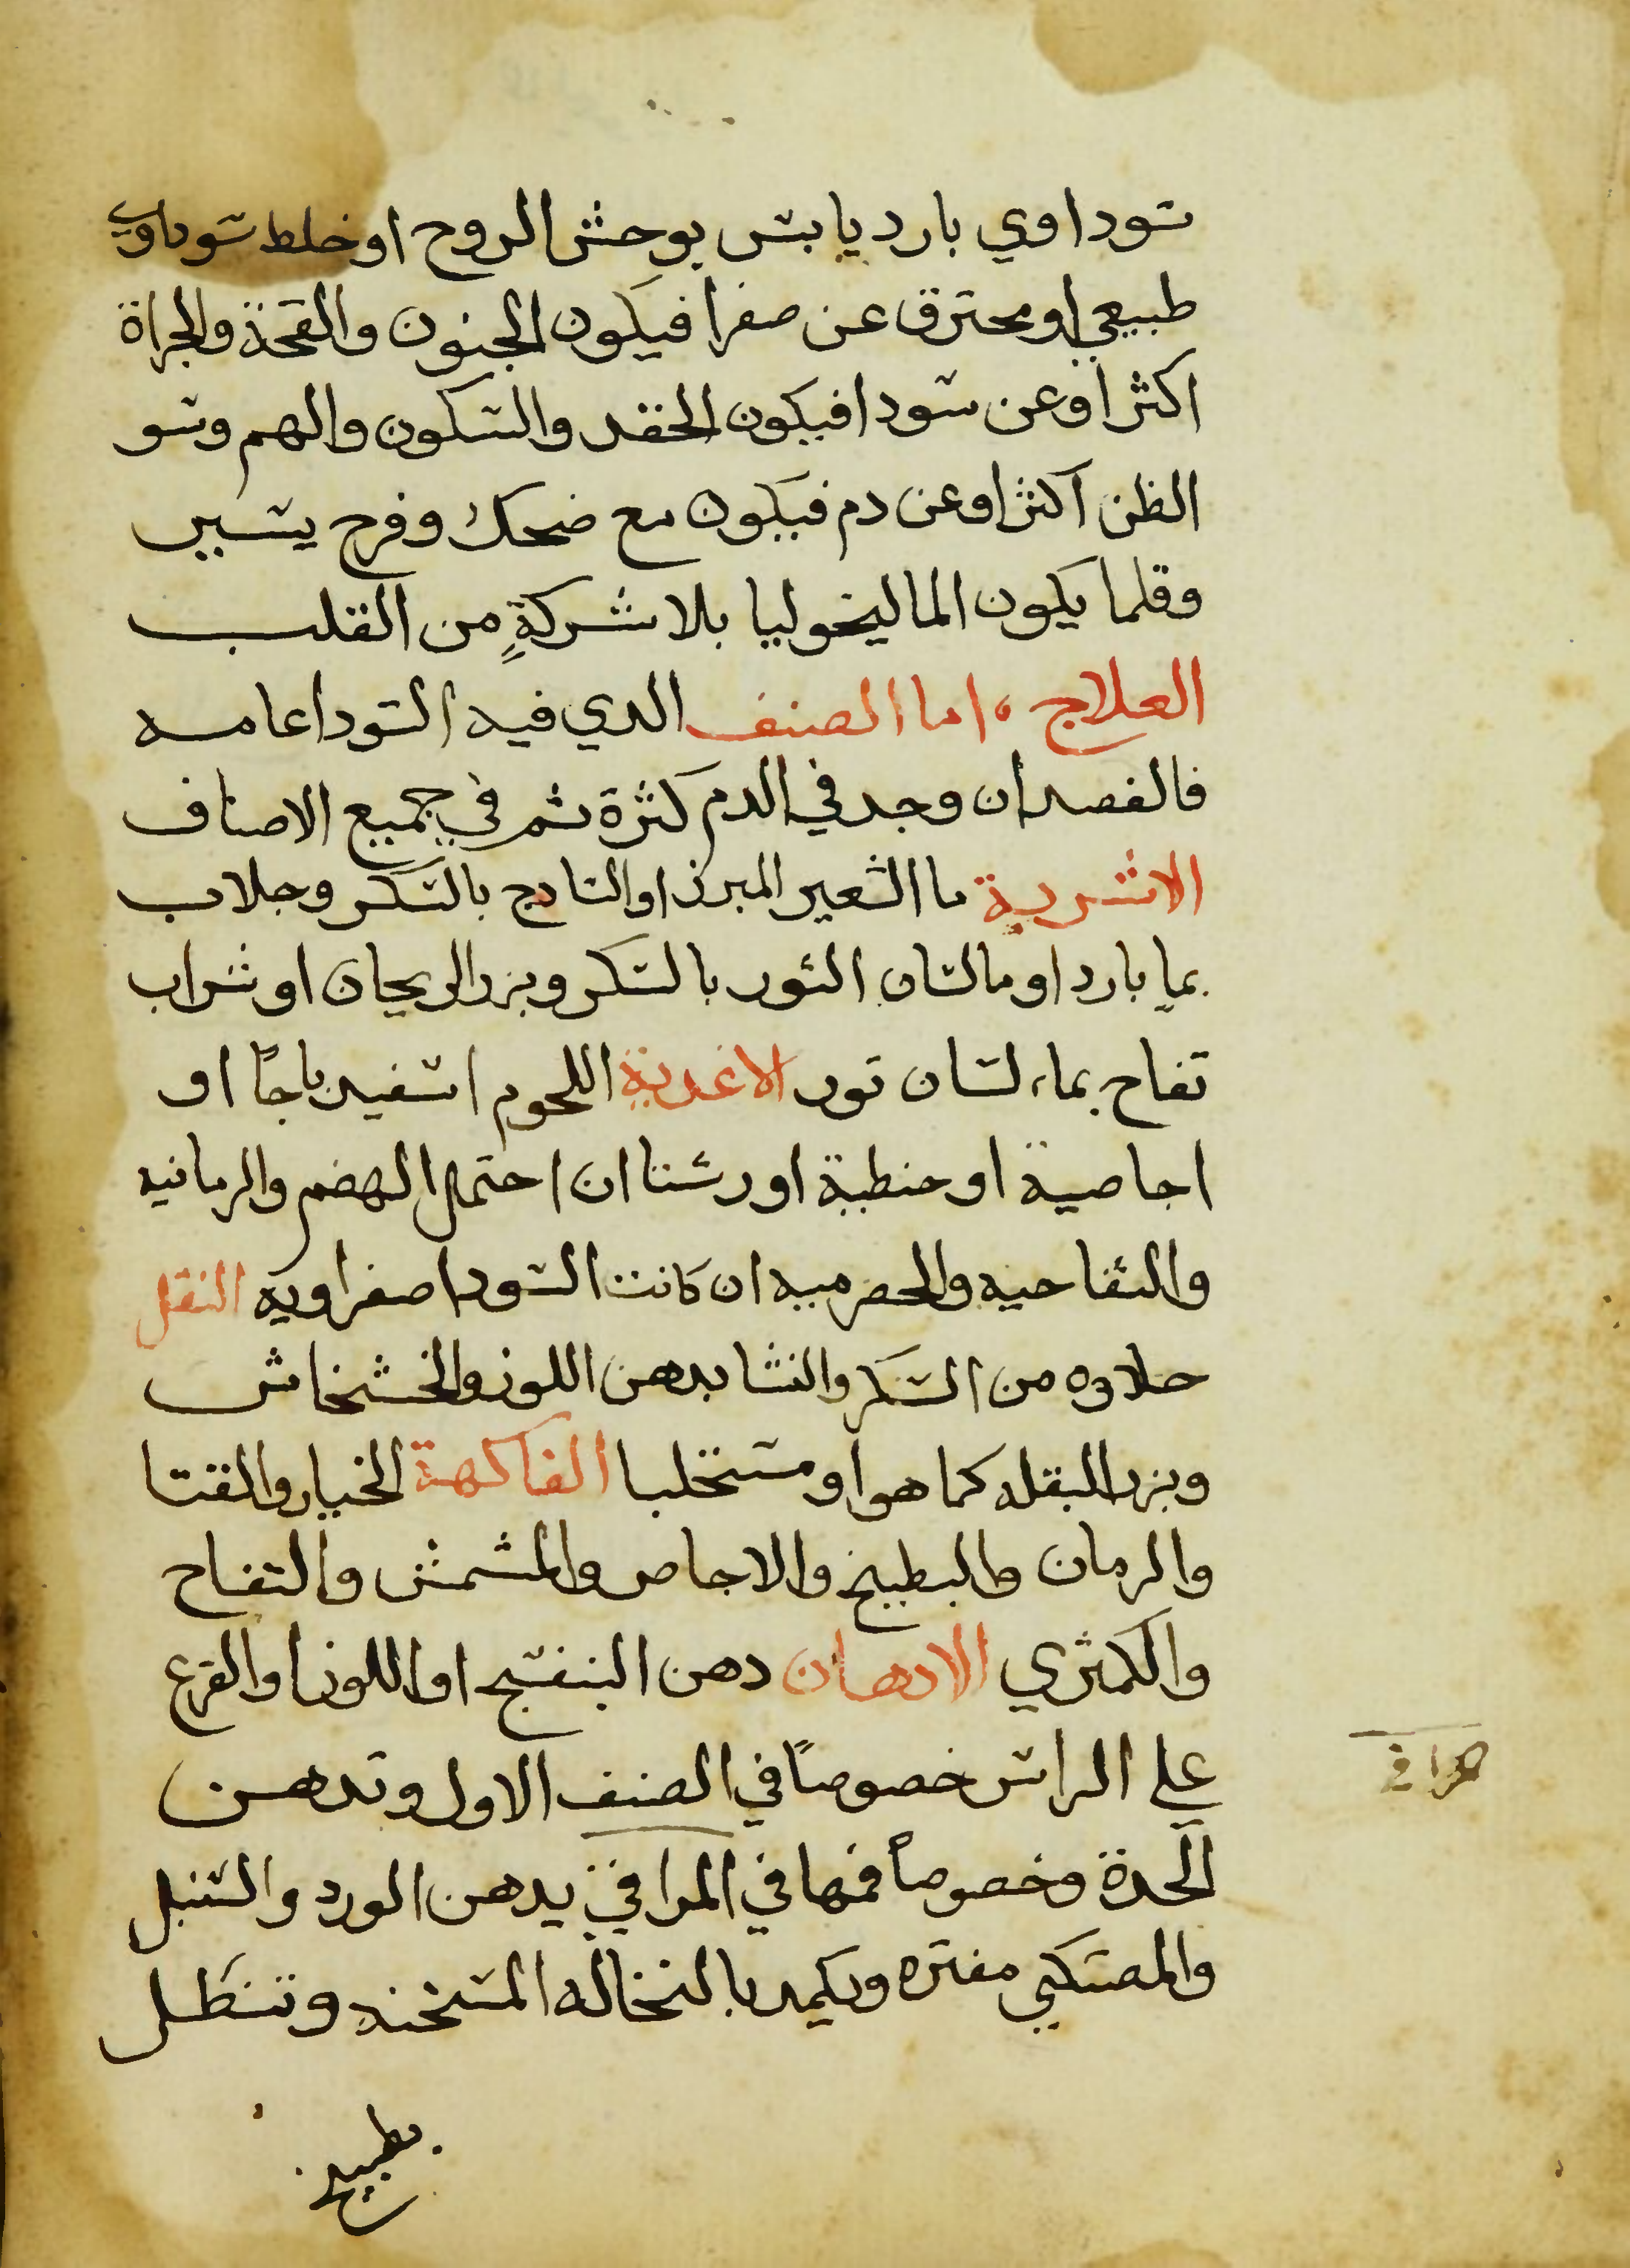 سوداوي بارد يابس يوحش الروح او خلط سوداوي
طبيعي او محترق عن صفرا فيكون الجنون والقحة والجراة
اكثر او عن سودا فيكون الحقد والسكون والهم وسو
الظن اكثر او عن دم فيكون مع ضحك وفرح يسير
وقلما يكون الماليخوليا بلا شركةٍ من القلب
العلاج ، اما الصنف الدي فيه السودا عامه
فالفصد ان وجد في الدم كثرة ثم في جميع الاصناف
الاشربة ما الشعير المبرز او السادج بالسكر وجلاب
بما بارد او ما لسان الثور بالسكر وبزر الريحان او شراب
تفاح بماء لسان تور الاغدية اللحوم اسفيدباجًا او
اجاصية او حنطية او رشتا ان احتمل الهضم والرمانيه
والتفاحيه والحصرميه ان كانت السودا صفراويه النقل
حلاوه من السكر والنشا بدهن اللوز والخشخاش
وبزر البقله كما هو او مستحلبا الفاكهة الخيار والقتا
والرمان والبطيخ والاجاص والمشمش والتفاح
والكمثري الادهان دهن البنفسج او اللوز او القرع
علي الراس خصوصًا في الصنف الاول وتدهن
المعدة وخصوصاً فمها في المراقي بدهن الورد والسنبل
والمصتكي مفتره ويكمد بالنخاله المسخنه وتنطل
بطبيخ
مراقي